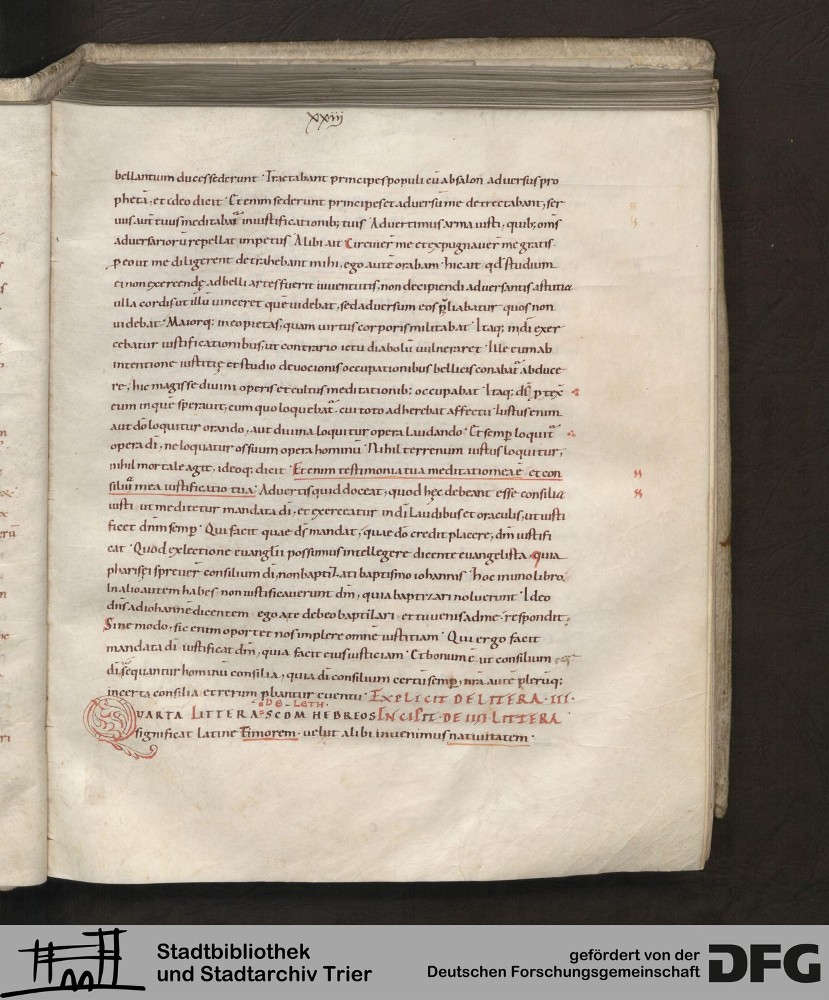 xxiij
bellantium duces sederunt · Tractabant principes populi cū absalon aduersus pro
phetā, et ideo dicit · Et enim sederunt principes et aduersū me detrectabant, ser
uus aut̄ tuus meditabat᷑ in iustificationib; tuis · Aduertimus arma iusti, quib; om̄s
aduersariorū repellat impetus · Alibi ait Circuier̄ me et expugnauer̄ me gratis ·
ꝓ eo ut me diligerent detrahebant mihi, ego autē orabam · hic ait qđ studium
ei non exercendę ad belli artes fuerit iuuentutis, non decipiendi aduersantis astutia
ulla cordis ut illū uinceret quē uidebat, sed aduersum eos p̄liabatur quos non
uidebat · Maiorq; in eo pietas, quam uirtus corporis militabat · Itaq; in dī exer
cebatur iustificationibus, ut contrario ictu diabolū uulneraret · Ille eum ab
intentione iustitię et studio deuotionis occupationibus bellicis conabat᷑ abduce
re, hic magis se diuini operis et cultus meditationib; occupabat · Itaq;
eum in quē sperauit, cum quo loquebat᷑ · cui toto adherebat affectu · Iustus enim
aut dō loquitur orando, aut diuina loquitur opera laudando · Et semp̱ loquit᷑
opera dī, ne loquatur os suum opera hominū · Nihil terrenum iustus loquitur,
nihil mortale agit, ideoq; dicit · Et enim testimonia tua meditatio mea ē · et con
siliū mea iustificatio tua · Aduertis quid doceat, quod hęc debeant esse consilia
iusti · ut meditetur mandata dī, et exerceatur in dī laudibus et oraculis, ut iusti
ficet dn̄m semp̱ · Qui facit quae ds̄ mandat, quae dō credit placere, dn̄m iustifi
cat · Quod ex lectione euanglii possumus intellegere dicente euangelista · quia
pharisęi spreuer̄ consilium dī, non baptizati baptismo iohannis · hoc in uno libro ·
In alio autem habes non iustificauerunt dm̄, quia baptizari noluerunt · Ideo
dn̄s ad iohannē dicentem ego a te debeo baptizari · et tu uenis ad me · respondit ·
Sine modo, sic enim oportet nos implere omnē iustitiam · Qui ergo facit
mandata dī · iustificat dm̄, quia facit eius iusticiam · Et bonum ē ut consilium
dī sequantur hominū consilia, quia dī consilium certū semp̱, nr̄a autē plerūq;
incerta consilia et rerum ꝓbantur euentu · EXPLICIT DE LITERA · III ·
DE · LETH ·
QUARTA LITTERA · SCDM HEBREOS INCIPIT · DE IIII LITTERA
significat latine Timorem · uelut alibi inuenimus natiuitatem ·
Stadtbibliothek
und Stadtarchiv Trier
gefördert von der
Deutschen Forschungsgemeinschaft
DFG